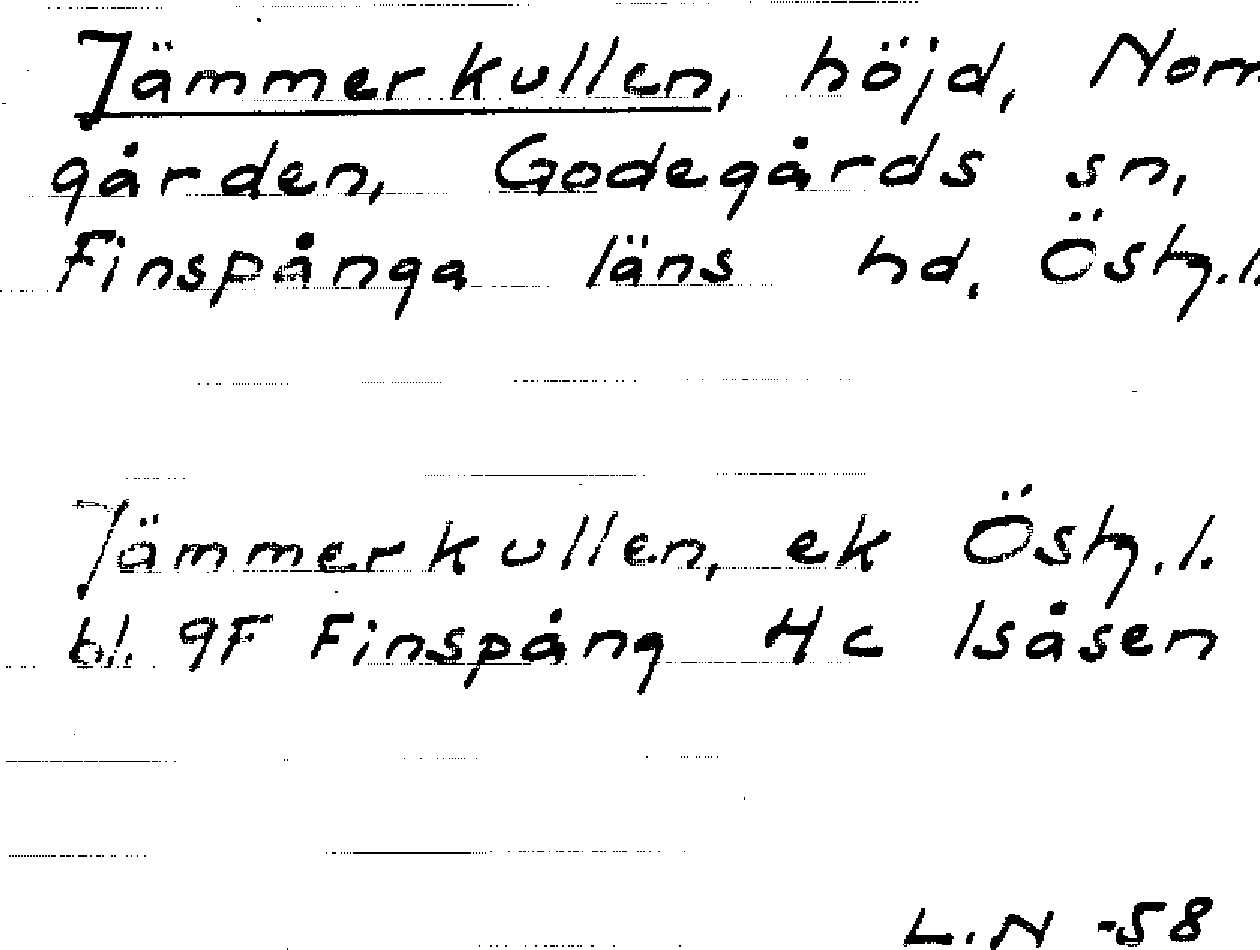 Jämmerkullen, höjd, Norr
gården, Godegårds sn,
Finspånga läns hd, Östg.l.
Jämmerkullen, ek Östg.l.
bl. 9F Finspång 4c Isåsen
L.N -58